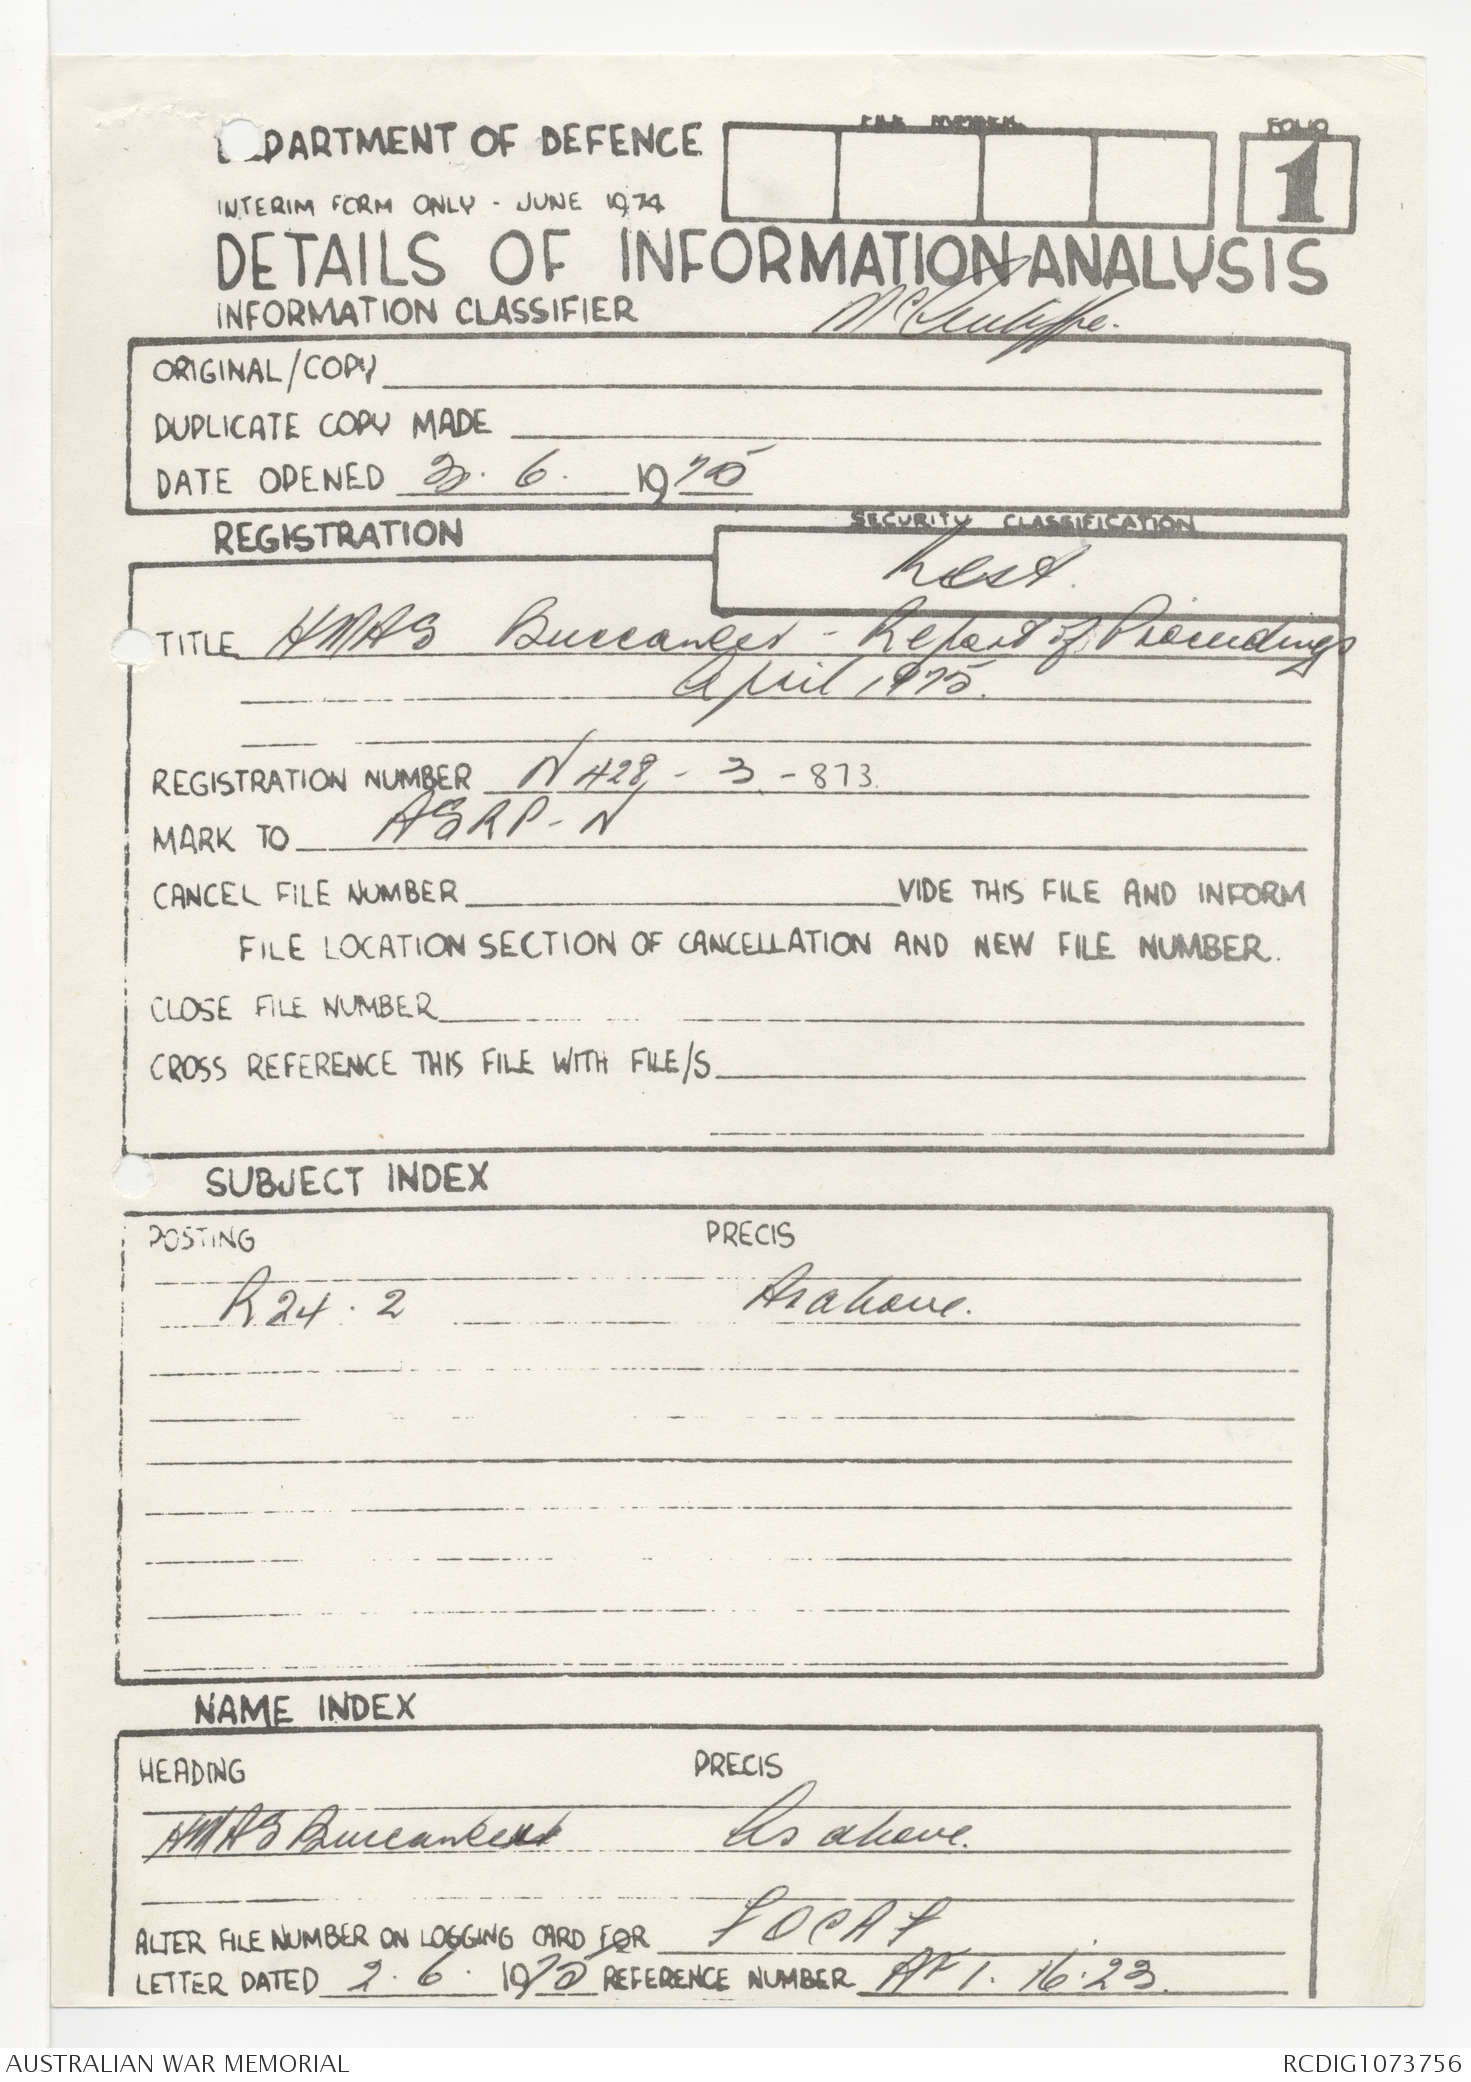 DEPARTMENT OF DEFENCE
FILE NUMBER
FOLIO
1
INTERIM FORM ONLY - JUNE 1974
DETAILS OF INFORMATION ANALYSIS
INFORMATION CLASSIFIER
ORIGINAL/COPY
DUPLICATE COPY MADE
DATE OPENED 3. 6. 1975
REGISTRATION
SECURITY CLASSIFICATION
Rest.
TITLE HMAS Buccaneer - Report of Proceedings
April 1975.
REGISTRATION NUMBER N428 - 3 - 873.
MARK TO ASRP - N
CANCEL FILE NUMBER VIDE THIS FILE AND INFORM
FILE LOCATION SECTION OF CANCELLATION AND NEW FILE NUMBER.
CLOSE FILE NUMBER
CROSS REFERENCE THIS FILE WITH FILE/S
SUBJECT INDEX
POSTING PRECIS
R24.2 As above.
NAME INDEX
HEADING PRECIS
HMAS Buccaneer As above.
ALTER FILE NUMBER ON LOGGING CARD FOR FOCAF
LETTER DATED 2.6. 1975 REFERENCE NUMBER AF 1. 16.23.
AUSTRALIAN WAR MEMORIAL
RCDIG1073756